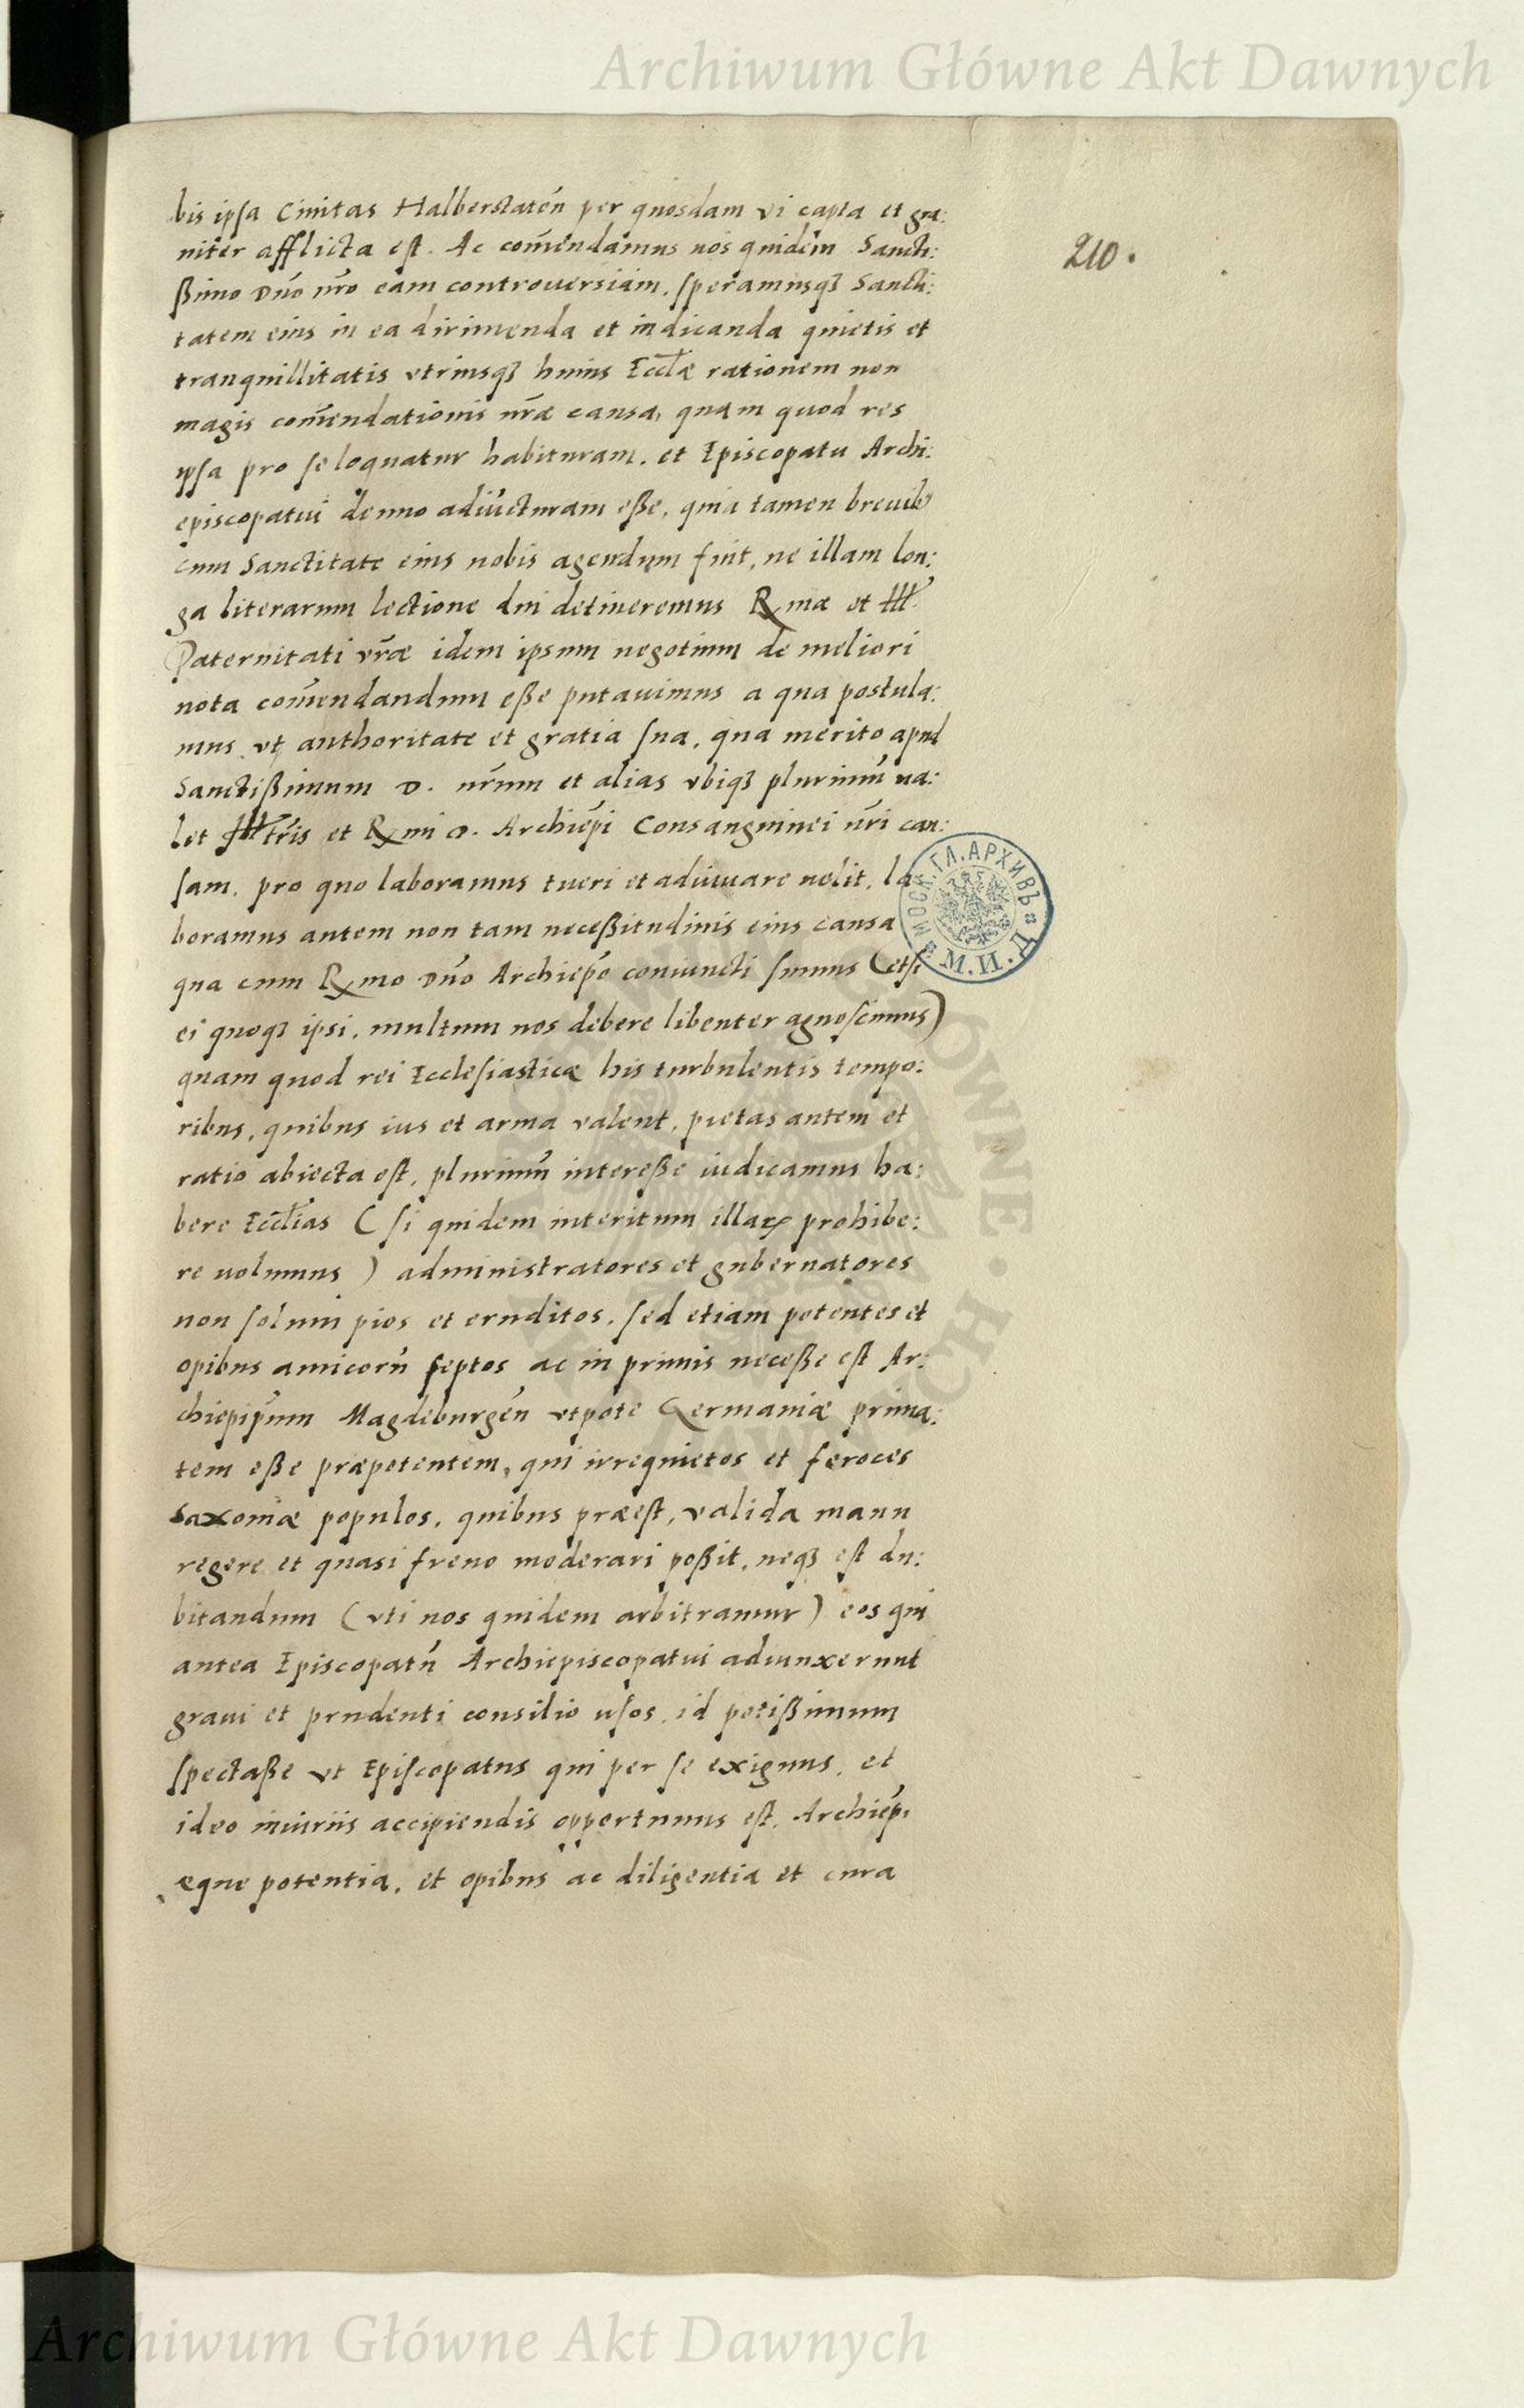 Archiwum Główne Akt Dawnych
210.
bis ipsa Ciuitas Halberstateñ per quosdam vi capta et gra:
uiter afflicta est. Ac com̃endamus nos quidem Sancti:
ßimo Dño nr̃o eam controuersiam, speramusqȝ Sancti:
tatem eius in ea dirimenda et iudicanda quietis et
tranquillitatis vtriusqȝ huius Eccl̃æ rationem non
magis com̃endationis nr̃æ causa, quam quod res
ipsa pro se loquatur habituram, et Episcopatu Archi:
episcopatui denuo adiucturam eße, quia tamen breuib
cum Sanctitate eius nobis agendum fuit, ne illam lon:
ga literarum lectione diu detineremus Rmæ et Ill.
Paternitati vr̃æ idem ipsum negotium de meliori
nota com̃endandum eße putauimus a qua postula:
mus, vt authoritate et gratia sua, qua merito apud
Sanctißimum D. nr̃um et alias vbiqȝ plurimũ ua:
let Illtr̃is et Rmi D. Archiep̃i Consanguinei nr̃i cau:
sam, pro quo laboramus tueri et adiuuare uelit, la
boramus autem non tam neceßitudinis eius causa
qua cum Rmo Dño Archiep̃o coniuncti sumus (etsi
ei quoqȝ ipsi, multum nos debere libenter agnoscimus)
quam quod rei Ecclesiasticæ his turbulentis tempo:
ribus, quibus ius et arma valent, pietas autem et
ratio abiecta est, plurimũ intereße iudicamus ha:
bere Eccl̃ias (si quidem interitum illaꝝ prohibe:
re uolumus) administratores et gubernatores
non solum pios et eruditos, sed etiam potentes et
opibus amicorũ septos ac in primis neceße est Ar:
chiepip̃um Magdeburgeñ vtpote Germaniæ prima:
tem eße præpotentem, qui irrequietos et feroces
Saxoniæ populos, quibus præest, valida manu
regere et quasi freno moderari poßit, neqȝ est du:
bitandum (vti nos quidem arbitramur) eos qui
antea Episcopatũ Archiepiscopatui adiunxerunt
graui et prudenti consilio usos, id potißimum
spectaße vt Episcopatus qui per se exiguus, et
ideo iniuriis accipiendis opportunus est, Archiep̃i
æque potentia, et opibus ac diligentia et cura
МОСК. ГЛ. АРХИВЪ
М. И. Д.
Archiwum Główne Akt Dawnych